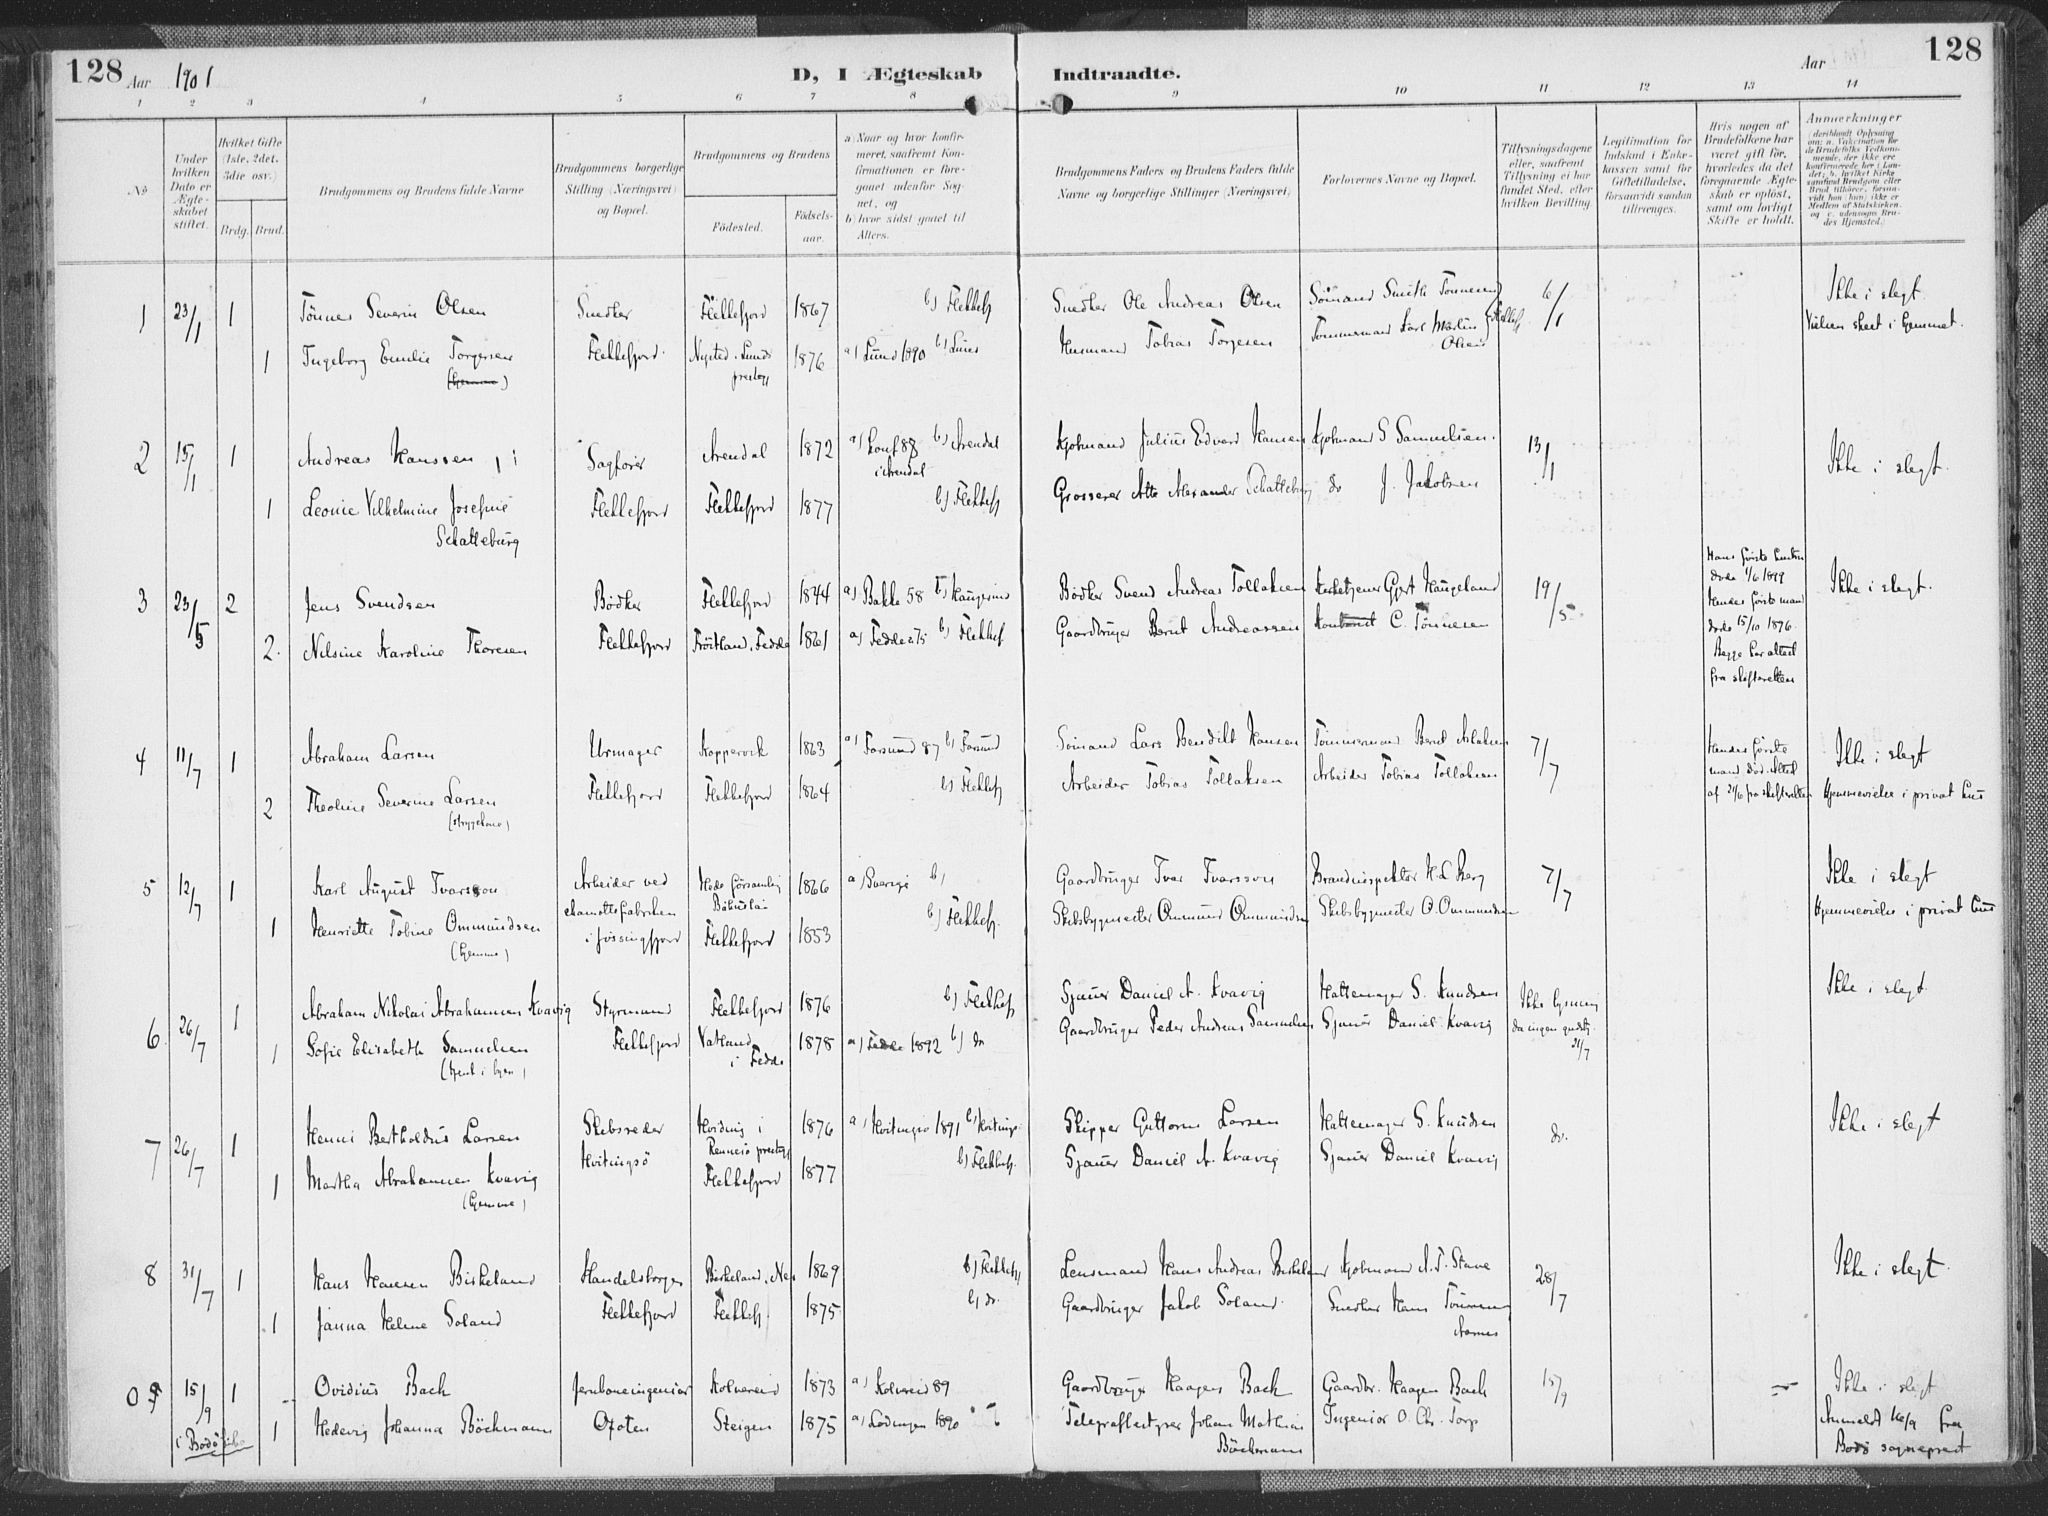 128 Aar 1901 D, I Ægteskab Indtraadte. Aar 128
1 2 3 4 5 6 7 8 9 10 11 12 13 14
No
Under hvilken Dato er Ægteskabet stiftet.
Hvilket Gifte (1ste, 2det, 3die osv.)
Brdg. Brud.
Brudgommens og Brudens fulde Navne
Brudgommens borgerlige Stilling (Næringsvei) og Bopæl.
Brudgommens og Brudens
Fødested. Fødselsaar.
a) Naar og hvor konfirmeret, saafremt Konfirmationen er foregaaet udenfor Sognet, og
b) hvor sidst gaaet til Alters.
Brudgommens Faders og Brudens Faders fulde Navne og borgerlige Stillinger (Næringsvei)
Forlovernes Navne og Bopæl.
Tillysningsdagene eller, saafremt Tillysning ei har fundet Sted, efter hvilken Bevilling.
Legitimation for Indskud i Enkekassen samt for Giftetilladelse, forsaavidt saadan tiltrænges.
Hvis nogen af Brudefolkene har været gift før, hvorledes da det foregaaende Ægteskab er opløst, samt om lovligt Skifte er holdt.
Anmerkninger
(deriblandt Oplysning om: a. Vakcination for de Brudefolks Vedkommende, der ikke ere konfirmerede her i Landet; b. hvilket Kirkesamfund Brudgom eller Brud tilhører, forsaavidt han (hun) ikke er Medlem af Statskirken, og c. udensogns Brudes Hjemsted.)
1 23/1 1 Tönnes Severin Olsen Snedker Flekkefjord 1867 b) Flekkefj Snedker Ole Andreas Olsen Sömand Smith Tönnesen 6/1 Ikke i slegt
Vielsen skeet i hjemmet.
1 Ingeborg Emilie Torgersen Flekkefjord Nysted, Lunds 1876 a) Lund 1890 b) Lund Husmand Tobias Torgesen Tömmermand Karl Martin Olsen Flekkefj
prestegj
2 15/1 1 Andreas Hanssen Sagförer Arendal 1872 a) Konf 88 b) Arendal Kjöbmand Julius Edvard Hansen Kjöbmand S Samuelsen. 13/1 Ikke i slegt.
i Arendal
1 Leonie Vilhelmine Josefine Flekkefjord Flekkefjord 1877 b) Flekkefj Grosserer Otto Alexander Schatteburg do J. Jakobsen
Schatteburg
3 23/5 2 Jens Svendsen Bödker Flekkefjord 1844 a) Bakke 58 b) Haugesund Bödker Svend Andreas Tollaksen Kirketjener Gjert Haugeland 19/5 Ikke i slegt.
Hans förste hustru döde 1/6 1899
Hendes förste mand döde 15/10 1896.
Begge har attest
fra skifteretten
2. Nilsine Karoline Thoresen Flekkefjord Fröitland, Fedde 1861 a) Fedde 275 b) Flekkef Gaardbruger Bernt Andreassen C. Tönnesen
4 11/7 1 Abraham Larsen Urmager Koppervik 1863 a) Farsund 87 b) Farsund Sömand Lars Bendikt Hansen Tömmermand Bernt Aslaksen 7/7 Ikke i slegt
Hendes förste
mand död. Attest
af 21/6 fra skifteretten Hjemmevielse i privat hus
2 Theoline Severine Larsen Flekkefjord Flekkefjord 1864 b) Flekkefj Arbeider Tobias Tollaksen Arbeider Tobias Tollaksen
(strygekone)
5 12/7 1 Karl August Ivarsson Arbeider ved 1866 a) Sverige b) Gaardbruger Ivar Ivarsson Brandinspektör H L Berg 7/7 Ikke i slegt
chamottefabriken Hjemmevielse i privat hus
1 Henriette Tobine Ommundsen i Jössingfjord Flekkefjord 1853 b) Flekkefj. Skibsbygmester Ommund Ommundsen Skibsbygmester O. Ommundsen
(hjemme)
6 26/7 1 Abraham Nikolai Abrahamsen Kvavig Styrmand Flekkefjord 1876 b) Flekkef Sjauer Daniel A. Kvavig Hattemager S. Knudsen Ikke lysning Ikke i slegt.
da ingen gudstj.
21/7
1 Sofie Elisabeth Samuelsen Flekkefjord Vatland 1878 a) Fedde 1892 b) do Gaardbruger Peder Andreas Samuelsen Sjauer Daniel Kvavig
(tjent i byen) i Fedde
7 26/7 1 Henni Bertholdus Larsen Skibsreder Hviding i 1876 a) Hvitingsö 1891 b) Hvitings Skipper Guttorm Larsen Hattemager S. Knudsen do. Ikke i slegt
Hvitingsö Rennesö prestegj
1 Martha Abrahamsen Kvavig Flekkefjord 1877 b) Flekkefj. Sjauer Daniel A. Kvavig Sjauer Daniel Kvavig
(hjemme)
8 31/7 1 Hans Hansen Birkeland Handelsborger Birkeland, Nes 1869 b) Flekkefj Lensmand Hans Andreas Birkeland Kjöbmand A. T. Stave 28/7 Ikke i slegt.
1 Janna Helene Soland Flekkefjord Flekkefj. 1875 b) do. Gaardbruger Jakob Soland. Snedker Hans Tönnesen
Aarnes
9 15/9 1 Ovidius Bach Jernbaneingeniör Kolvereid 1873 a) Kolvereid 89 Gaardbruger Haagen Bach Gaardbr. Haagen Bach 15/9 Ikke i slegt
Anmeldt 16/9 fra
Bodö sogneprest
1 Hedevig Johanna Böckmann Ofoten Steigen 1875 a) Lödingen 1890 Telegrafbestyrer Johan Mathias Ingeniör O. Chr. Torp
Böckmann
i Bodö